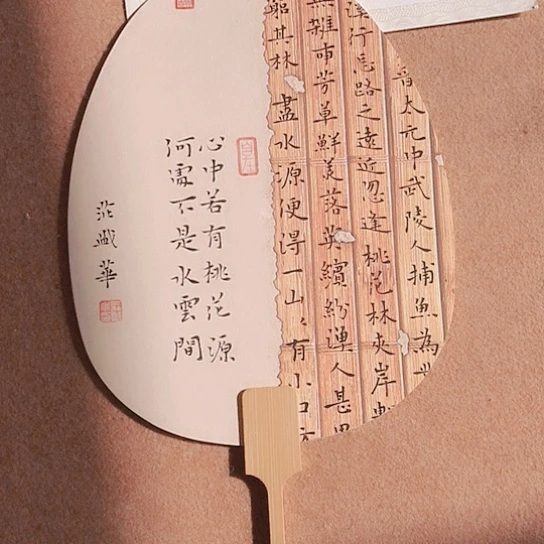 晉太元中武陵人捕魚為业
溪行忘路之遠近忽逢桃花林夾岸數
無雜樹芳草鮮美落英繽紛漁人甚異
窮其林 盡水源便得一山、有小口
心中若有桃花源
何處不是水雲間
華